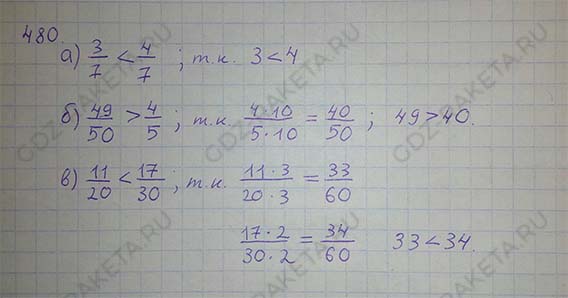 480.
а) 3/7 < 4/7 ; т.к. 3 < 4
б) 49/50 > 4/5 ; т.к. 4·10/5·10 = 40/50 ; 49 > 40.
в) 11/20 < 17/30 ; т.к. 11·3/20·3 = 33/60
17·2/30·2 = 34/60 33 < 34.
GDZ-RAKETA.RU